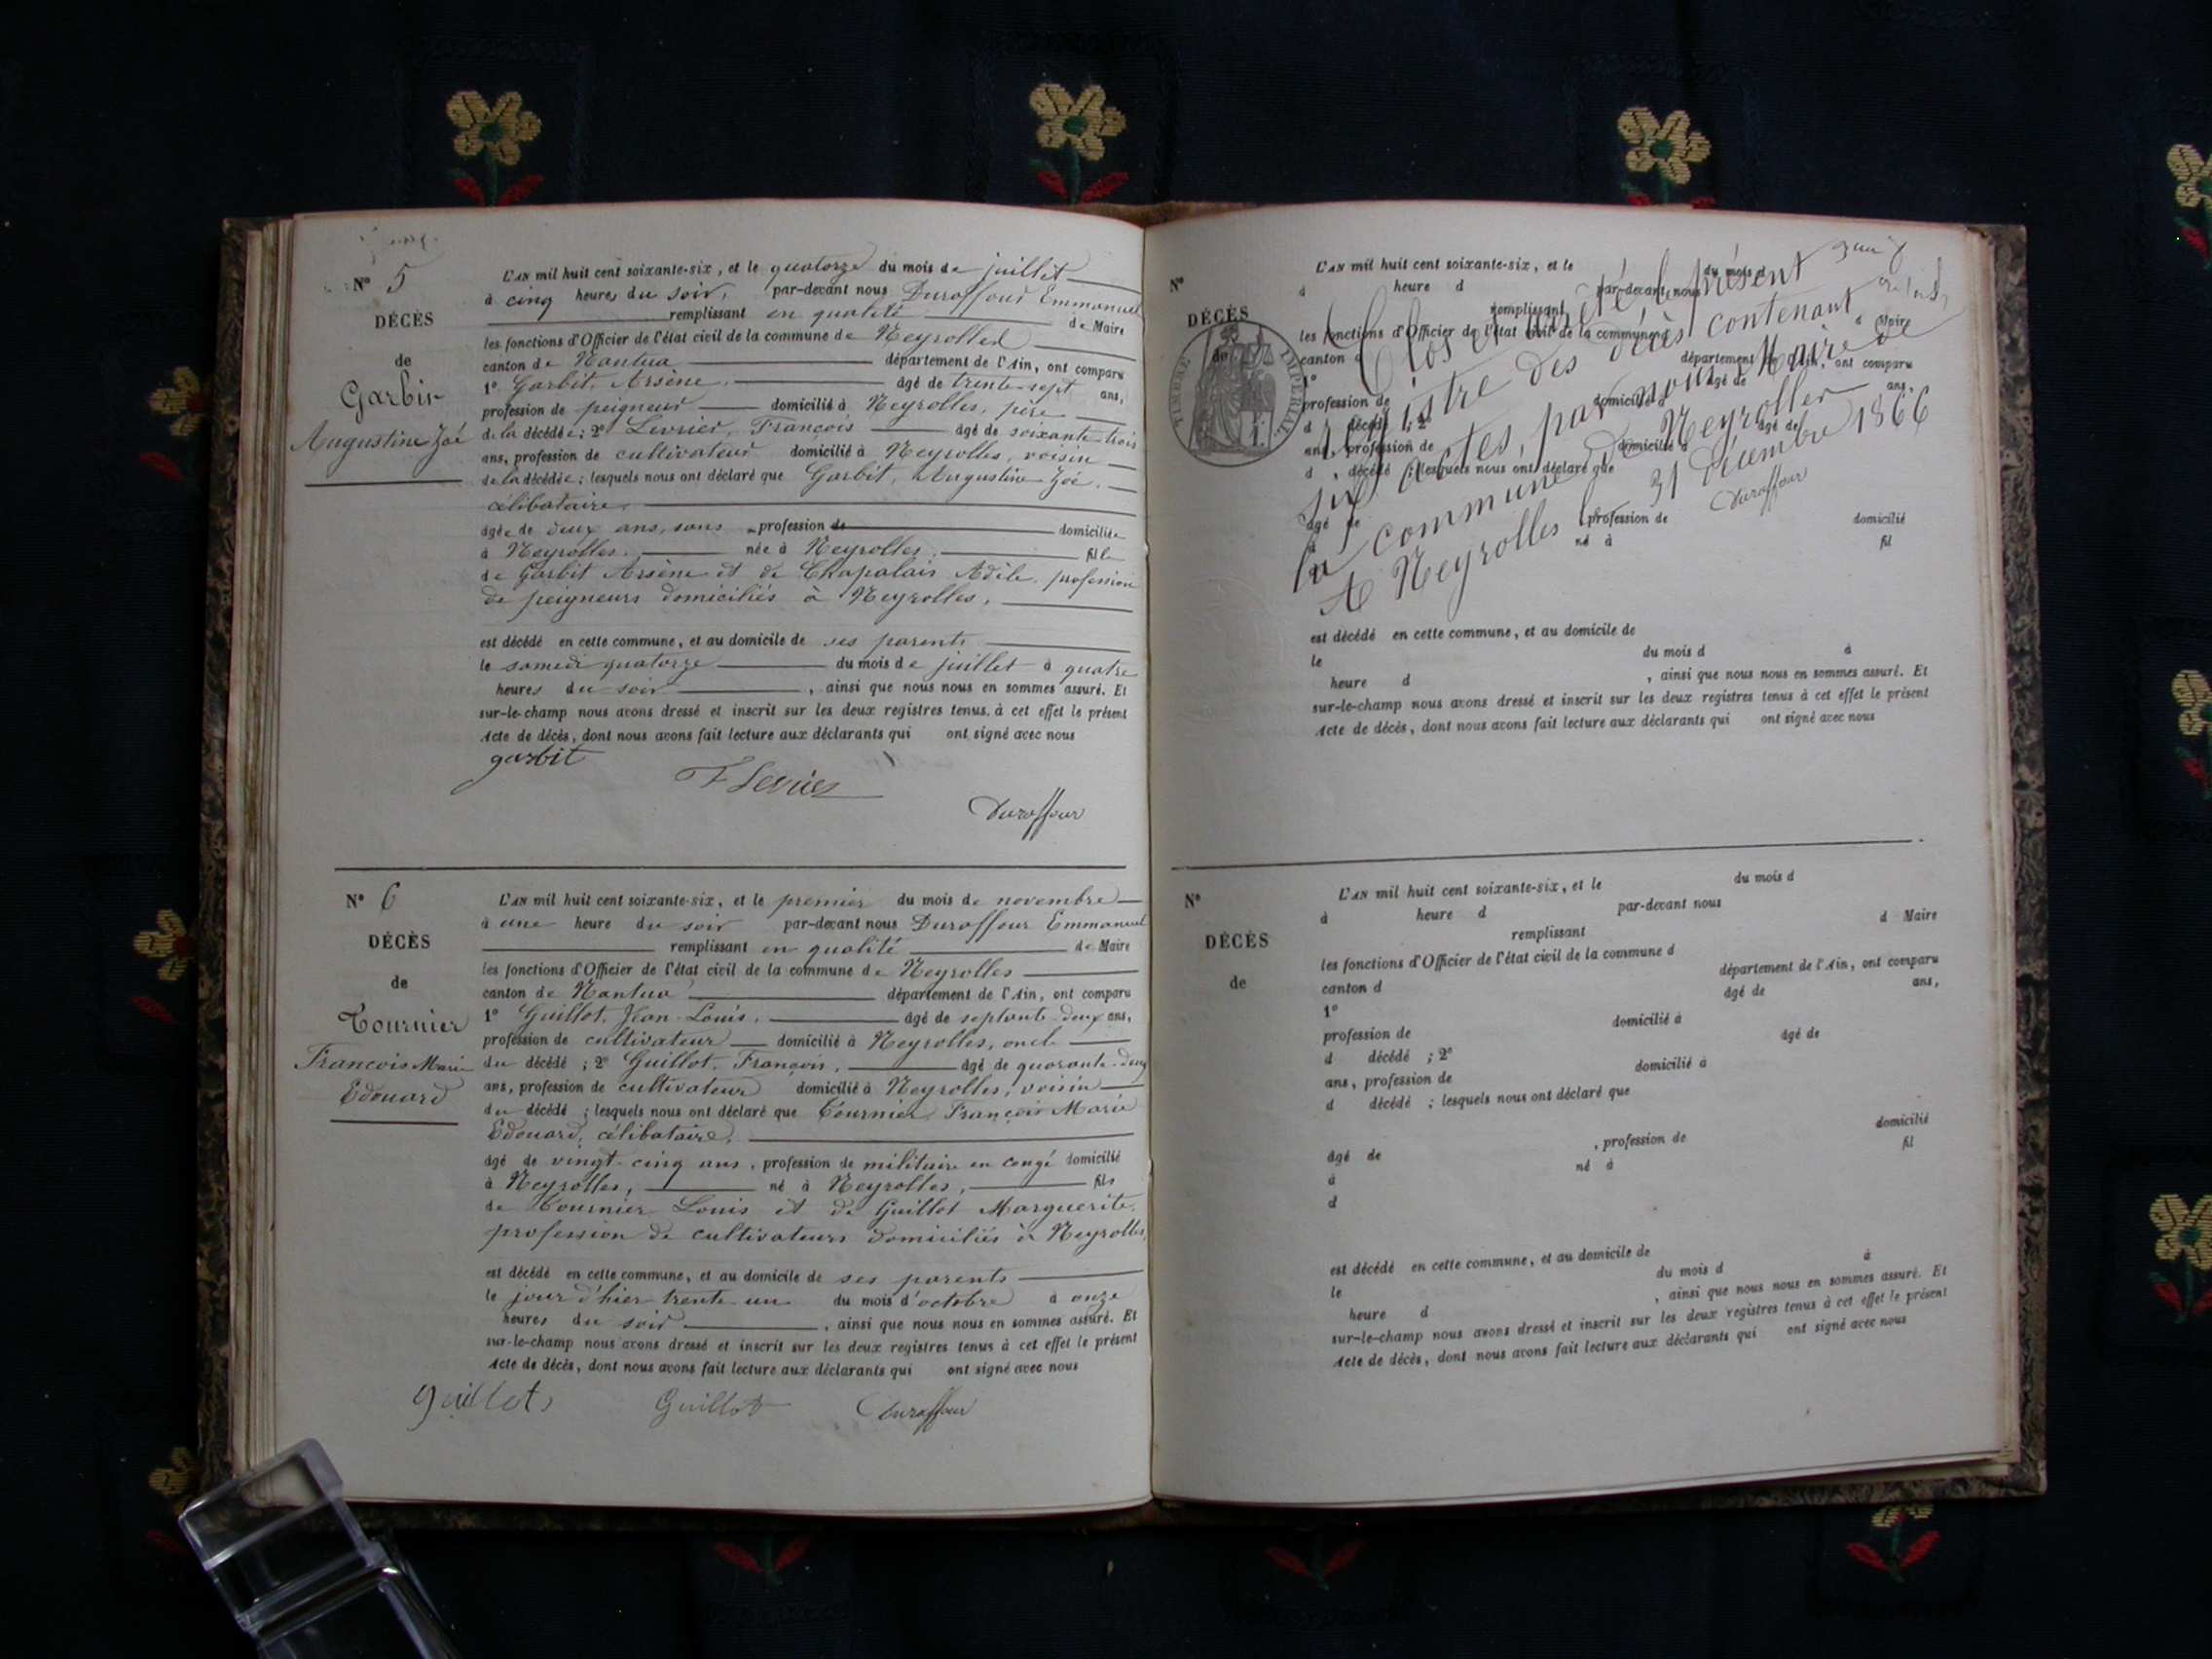 N° 5
DÉCÈS
de
Garbit
Augustine Zoé
L'AN mil huit cent soixante-six, et le quatorze du mois de juillet
à cinq heures du soir, par-devant nous Duraffour Emmanuel
remplissant en qualité de Maire
les fonctions d'Officier de l'état civil de la commune de Neyrolles
canton de Nantua département de l'Ain, ont comparu
1° Garbit, Arsène. âgé de trente-sept ans,
profession de peigneur domicilié à Neyrolles, père
de la décédée; 2° Levrier, François âgé de soixante-trois
ans, profession de cultivateur domicilié à Neyrolles, voisin
de la décédée; lesquels nous ont déclaré que Garbit, Augustine Zoé,
célibataire,
âgée de deux ans, sans profession de domiciliée
à Neyrolles, née à Neyrolles, fille
de Garbit Arsène et de Chapalais Adèle, profession
de peigneurs domiciliés à Neyrolles,
est décédé en cette commune, et au domicile de ses parents
le samedi quatorze du mois de juillet à quatre
heures du soir, ainsi que nous nous en sommes assuré. Et
sur-le-champ nous avons dressé et inscrit sur les deux registres tenus à cet effet le présent
Acte de décès, dont nous avons fait lecture aux déclarants qui ont signé avec nous
garbit
F Levrier
Duraffour
N° 6
DÉCÈS
de
Tournier
François Marie
Edouard
L'AN mil huit cent soixante-six, et le premier du mois de novembre
à une heure du soir par-devant nous Duraffour Emmanuel
remplissant en qualité de Maire
les fonctions d'Officier de l'état civil de la commune de Neyrolles
canton de Nantua département de l'Ain, ont comparu
1° Guillot, Jean-Louis, âgé de septante-deux ans,
profession de cultivateur domicilié à Neyrolles, oncle
du décédé; 2° Guillot, François, âgé de quarante-deux
ans, profession de cultivateur domicilié à Neyrolles, voisin
du décédé; lesquels nous ont déclaré que Tournier François Marie
Edouard, célibataire,
âgé de vingt-cinq ans, profession de militaire en congé domicilié
à Neyrolles, né à Neyrolles, fils
de Tournier Louis et de Guillot Marguerite,
profession de cultivateurs domiciliés à Neyrolles,
est décédé en cette commune, et au domicile de ses parents
le jour d'hier trente-un du mois d'octobre à onze
heures du soir, ainsi que nous nous en sommes assuré. Et
sur-le-champ nous avons dressé et inscrit sur les deux registres tenus à cet effet le présent
Acte de décès, dont nous avons fait lecture aux déclarants qui ont signé avec nous
guillot
Guillot
Duraffour
N°
DÉCÈS
de
TIMBRE IMPÉRIAL
L'AN mil huit cent soixante-six, et le du mois d
à heure d par-devant nous
remplissant
d Maire
les fonctions d'Officier de l'état civil de la commune d
canton d département de l'Ain, ont comparu
1° âgé de ans,
profession de domicilié à
d décédé ; 2° âgé de
ans, profession de domicilié à
d décédé ; lesquels nous ont déclaré que
âgé de , profession de domicilié
à né à fil
d
Clos et arrêté le présent
registre des décès contenant
six actes, par nous Maire de
la commune de Neyrolles
A Neyrolles le 31 décembre 1866
Duraffour
est décédé en cette commune, et au domicile de
le du mois d à
heure d , ainsi que nous nous en sommes assuré. Et
sur-le-champ nous avons dressé et inscrit sur les deux registres tenus à cet effet le présent
Acte de décès, dont nous avons fait lecture aux déclarants qui ont signé avec nous
N°
DÉCÈS
de
L'AN mil huit cent soixante-six, et le du mois d
à heure d par-devant nous
remplissant d Maire
les fonctions d'Officier de l'état civil de la commune d
canton d département de l'Ain, ont comparu
1° âgé de ans,
profession de domicilié à
d décédé ; 2° âgé de
ans, profession de domicilié à
d décédé ; lesquels nous ont déclaré que
âgé de , profession de domicilié
à né à fil
d
est décédé en cette commune, et au domicile de
le du mois d à
heure d , ainsi que nous nous en sommes assuré. Et
sur-le-champ nous avons dressé et inscrit sur les deux registres tenus à cet effet le présent
Acte de décès, dont nous avons fait lecture aux déclarants qui ont signé avec nous